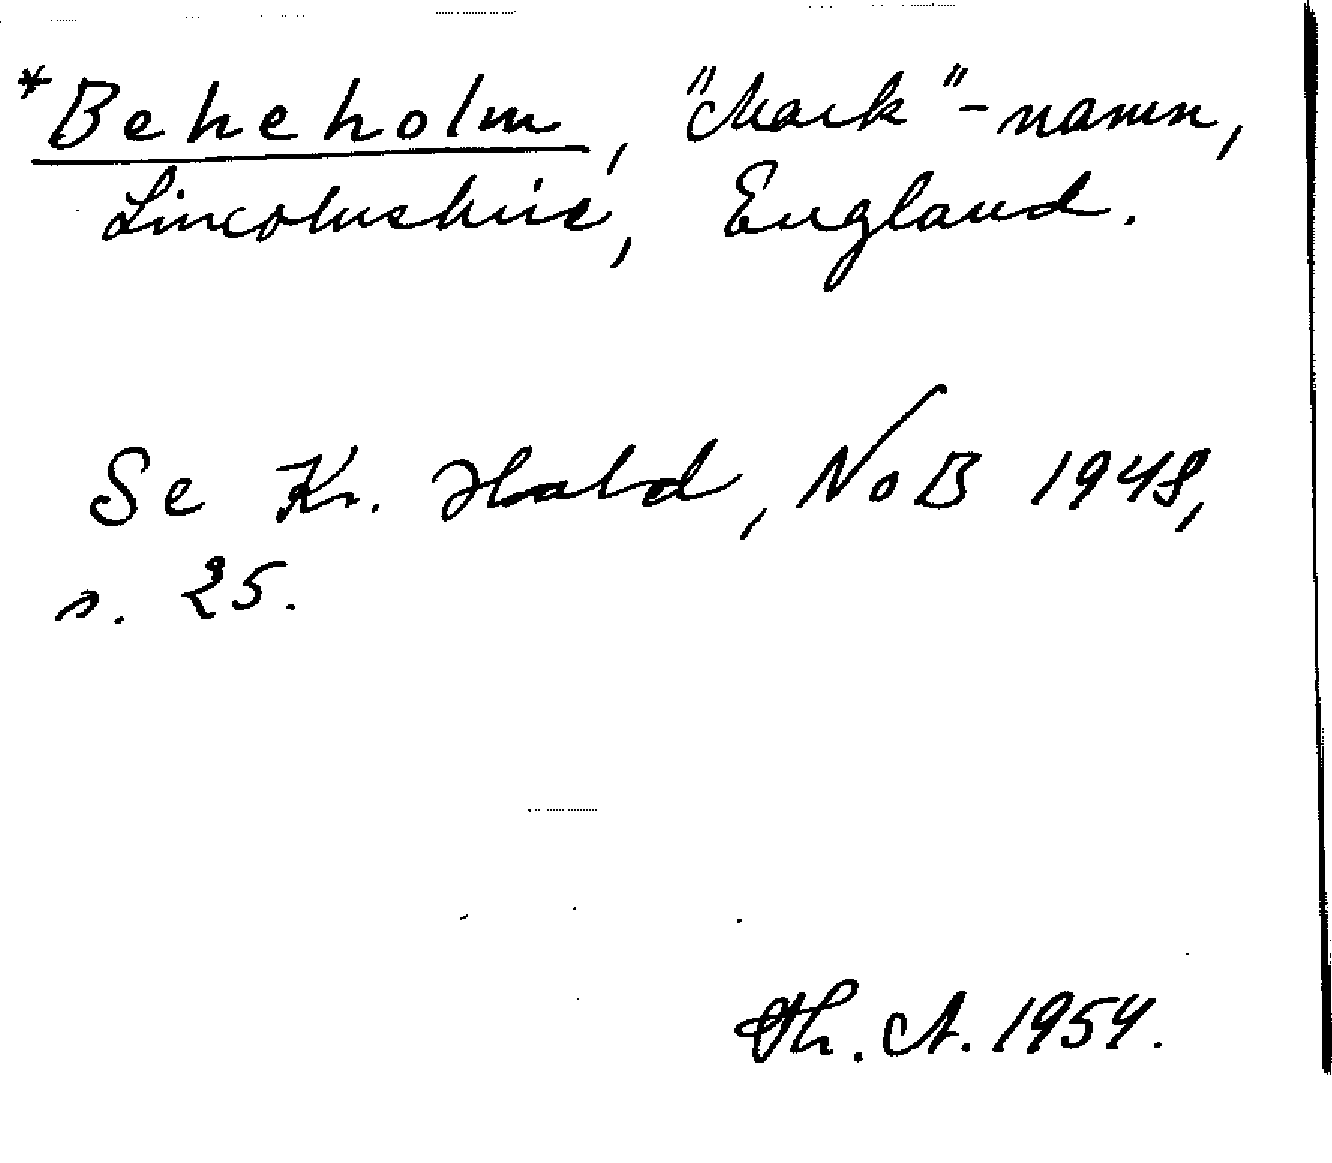 *Beheholm, "Mark"-namn,
Lincolnshire, England.
Se Kr. Hald, NoB 1948,
s. 25.
Th. A. 1954.